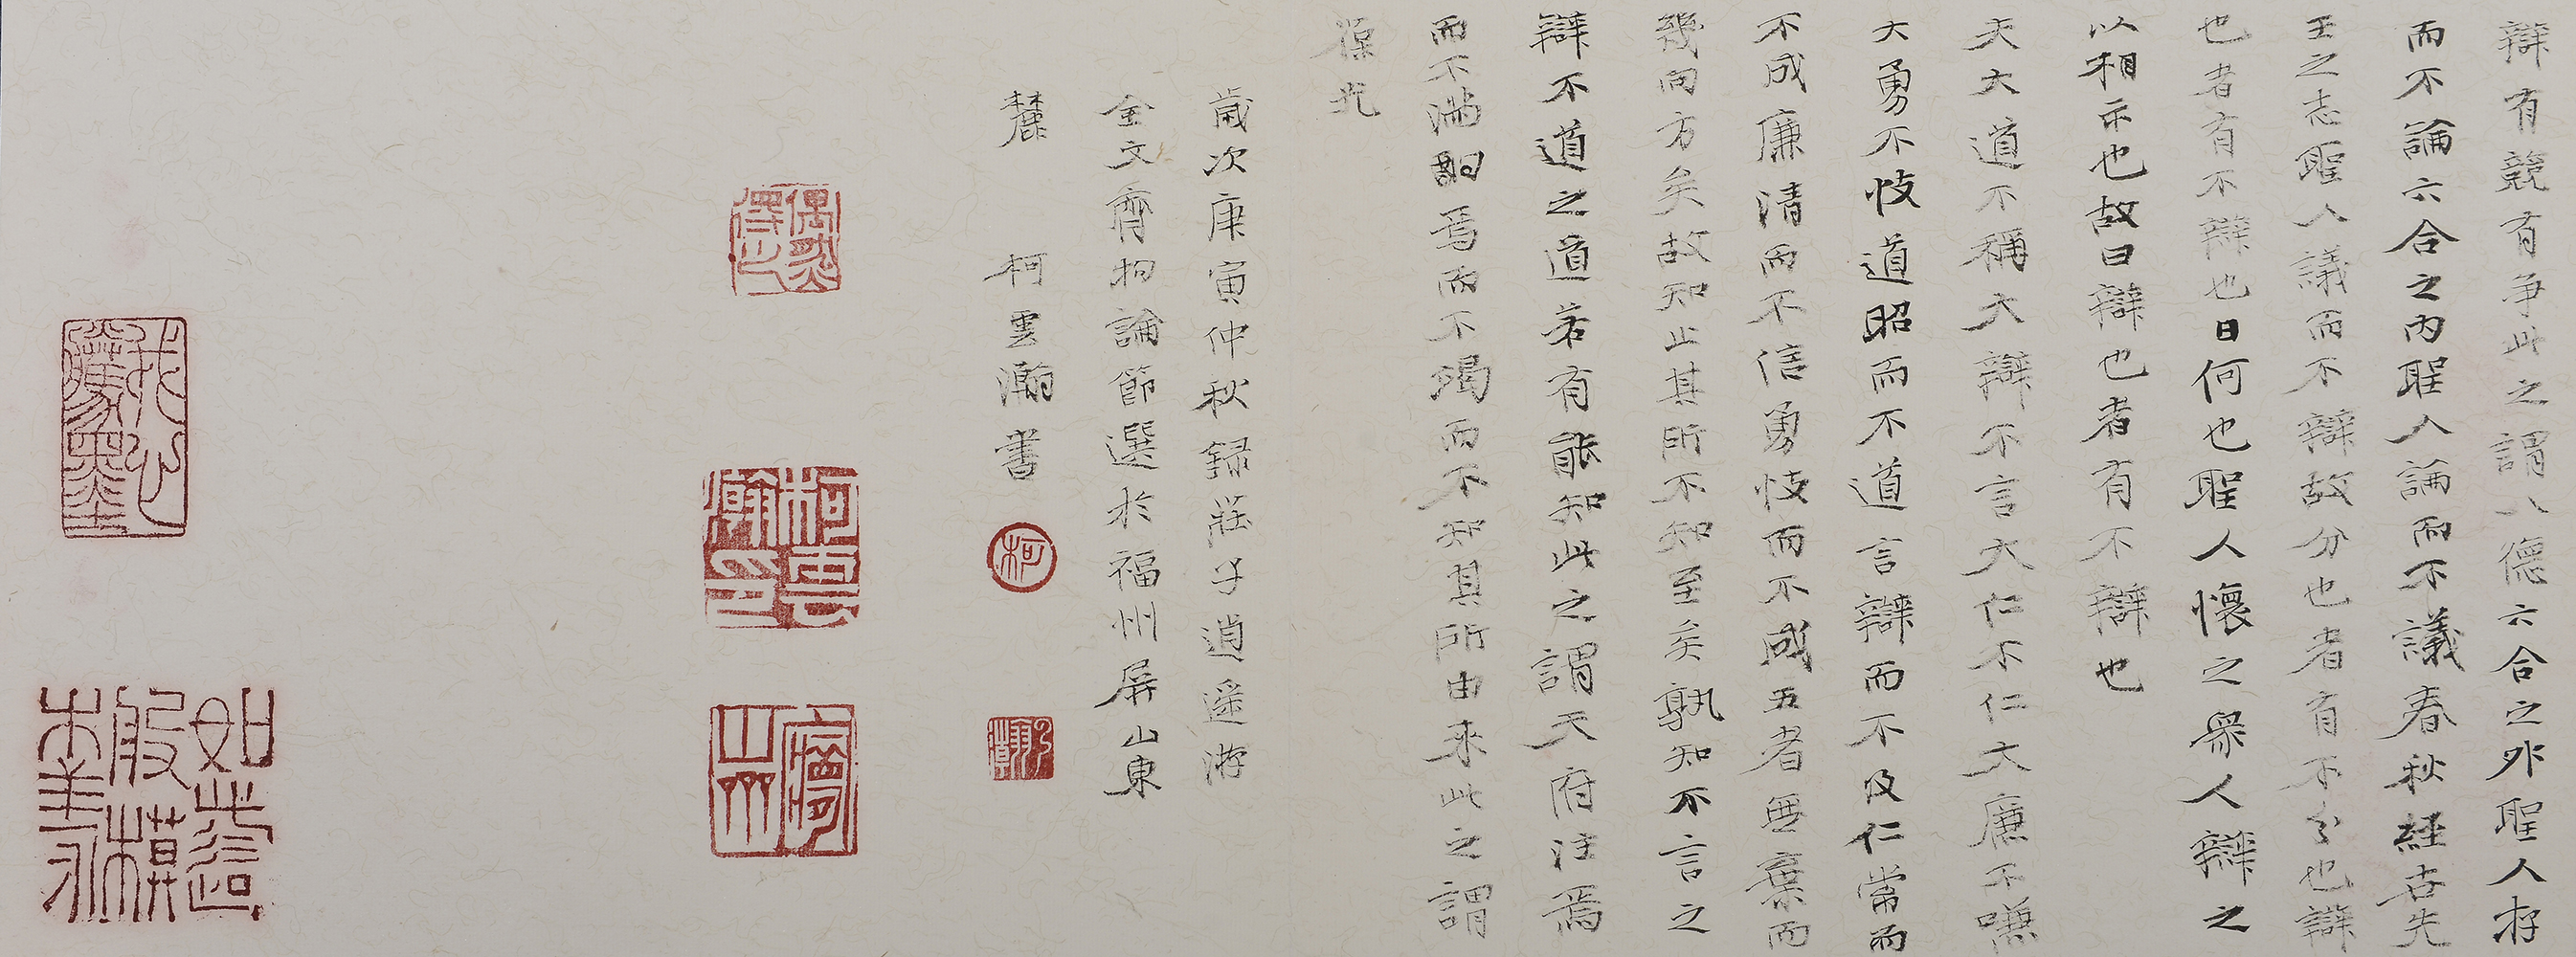 辯有競有爭此之謂八德六合之外聖人存
而不論六合之內聖人論而不議春秋經世先
王之志聖人議而不辯故分也者有不分也辯
也者有不辯也曰何也聖人懷之眾人辯之
以相示也故曰辯也者有不辯也
夫大道不稱大辯不言大仁不仁大廉不嗛
大勇不忮道昭而不道言辯而不及仁常而
不成廉清而不信勇忮而不成五者無棄而
幾向方矣故知止其所不知至矣孰知不言之
辯不道之道若有能知此之謂天府注焉
而不滿酌焉而不竭而不知其所由來此之謂
葆光
歲次庚寅仲秋録莊子逍遙游
金文齊物論節選於福州屏山東
麓 柯雲瀚書
柯
偶然得之
柯雲瀚印